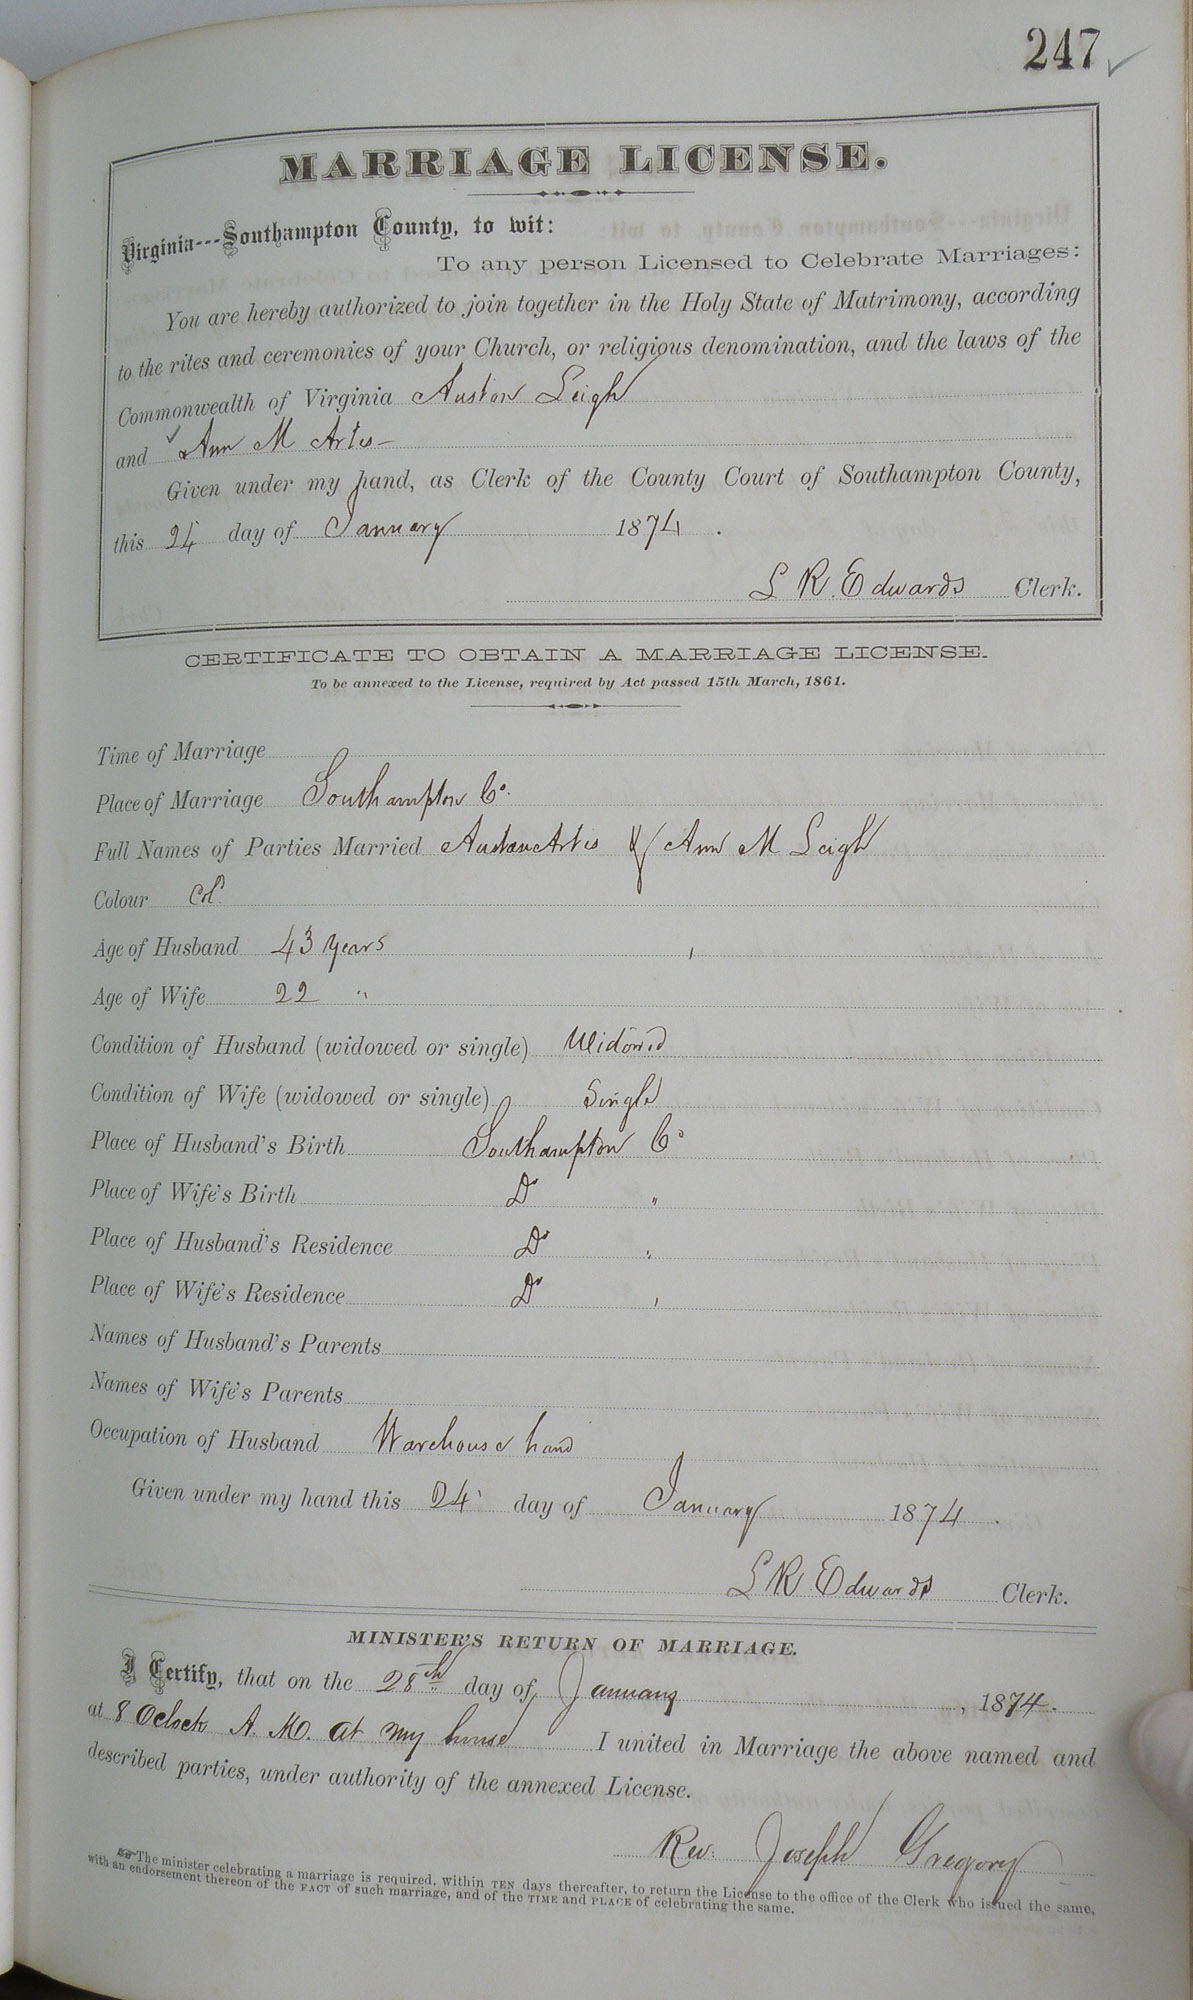 247 ✓
MARRIAGE LICENSE.
Virginia---Southampton County, to wit:
To any person Licensed to Celebrate Marriages:
You are hereby authorized to join together in the Holy State of Matrimony, according
to the rites and ceremonies of your Church, or religious denomination, and the laws of the
Commonwealth of Virginia Auston Leigh
and ✓ Ann M Artis
Given under my hand, as Clerk of the County Court of Southampton County,
this 24 day of January 1874.
L R. Edwards Clerk.
CERTIFICATE TO OBTAIN A MARRIAGE LICENSE.
To be annexed to the License, required by Act passed 15th March, 1861.
Time of Marriage
Place of Marriage Southampton Co.
Full Names of Parties Married Austan Artis & Ann M Leigh
Colour Col.
Age of Husband 43 years
Age of Wife 22 "
Condition of Husband (widowed or single) Widowed
Condition of Wife (widowed or single) Single
Place of Husband's Birth Southampton Co
Place of Wife's Birth Do "
Place of Husband's Residence Do "
Place of Wife's Residence Do "
Names of Husband's Parents
Names of Wife's Parents
Occupation of Husband Warehouse hand
Given under my hand this 24 day of January 1874.
L R Edwards Clerk.
MINISTER'S RETURN OF MARRIAGE.
I Certify, that on the 28th day of January, 1874.
at 8 Oclock A. M. at my house I united in Marriage the above named and
described parties, under authority of the annexed License.
Rev. Joseph Gregory
The minister celebrating a marriage is required, within TEN days thereafter, to return the License to the office of the Clerk who issued the same,
with an endorsement thereon of the FACT of such marriage, and of the TIME and PLACE of celebrating the same.